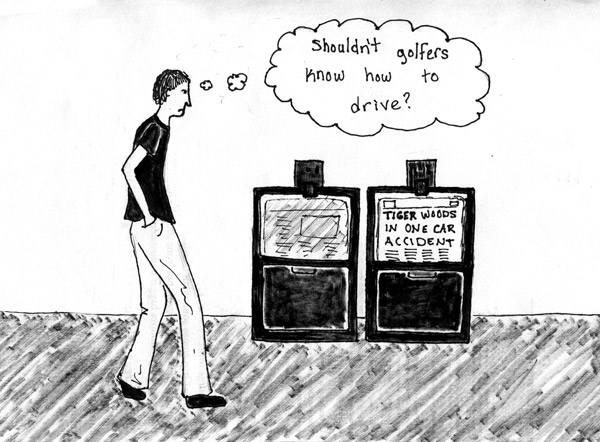 Shouldn't golfers
know how to
drive?
TIGER WOODS
IN ONE CAR
ACCIDENT